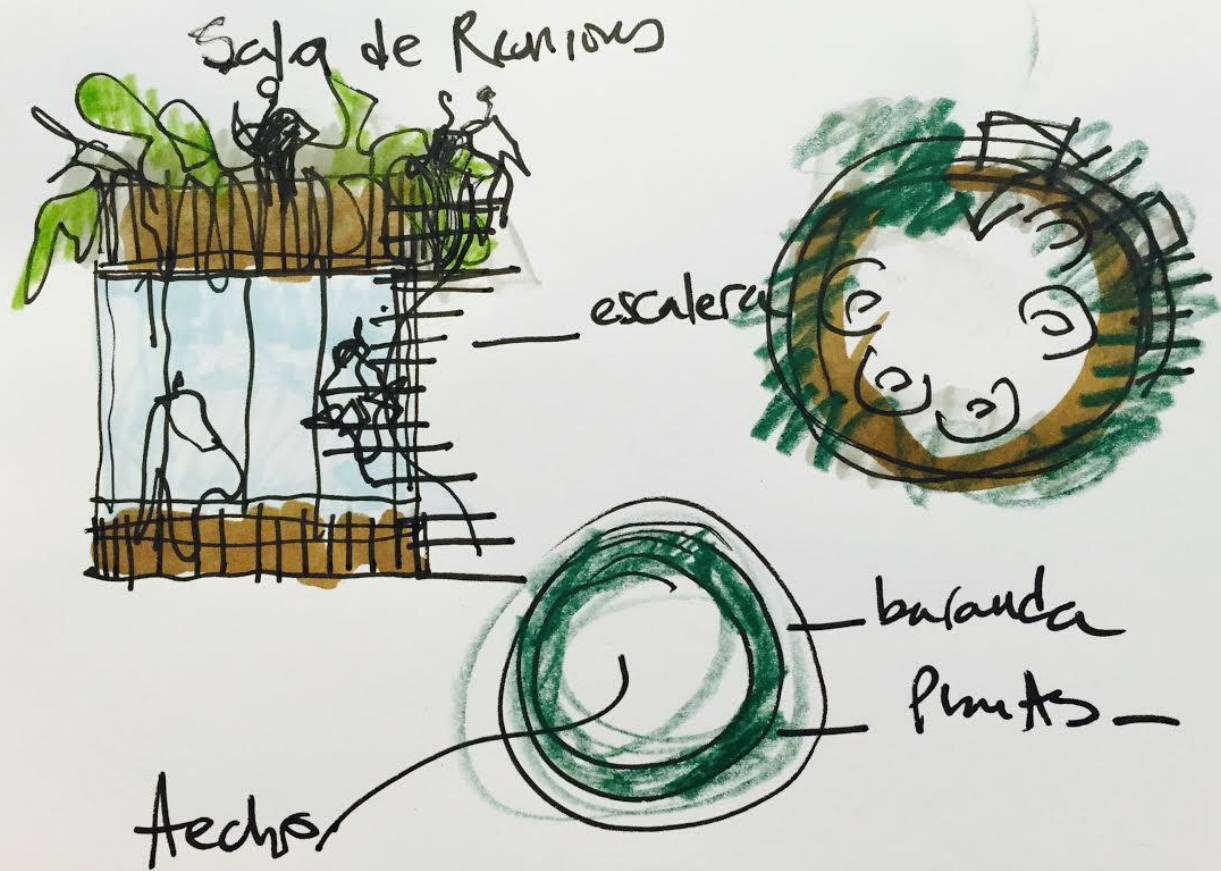 Sala de Reuniones
escalera
baranda
Plantas
techo